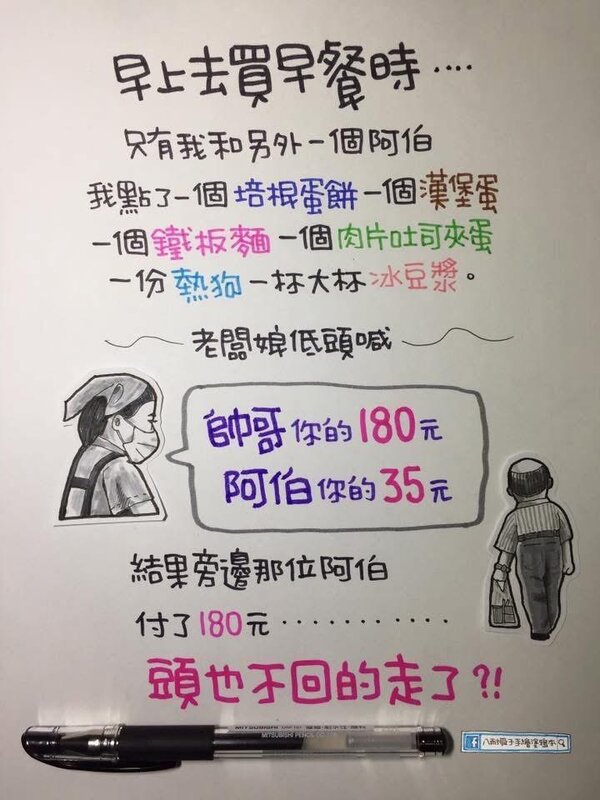 早上去買早餐時....
只有我和另外一個阿伯
我點了一個培根蛋餅一個漢堡蛋
一個鐵板麵一個肉片吐司夾蛋
一份熱狗一杯大杯冰豆漿。
老闆娘低頭喊
帥哥你的180元
阿伯你的35元
結果旁邊那位阿伯
付了180元............
頭也不回的走了?!
MITSUBISHI PENCIL CO.